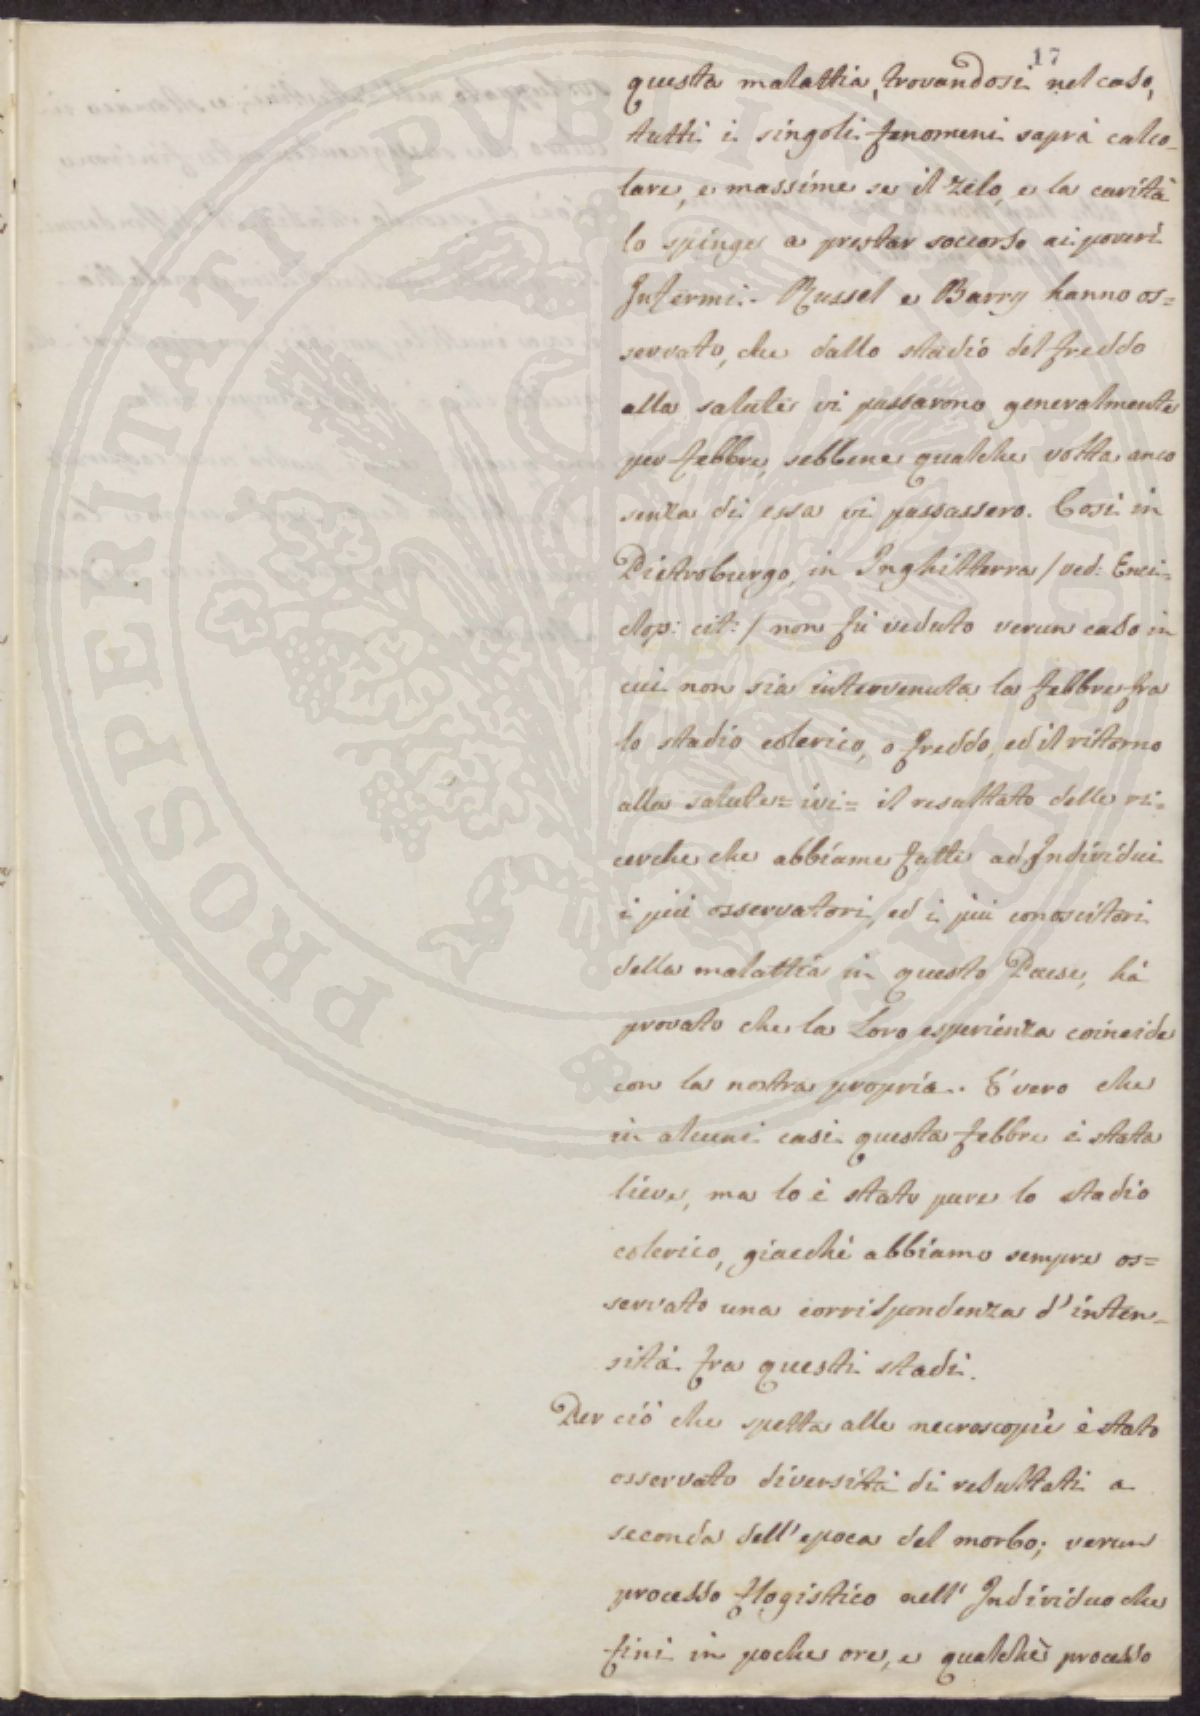 17
questa malattia, trovandosi nel caso,
tutti i singoli fenomeni saprà calco-
lare, e massime se il zelo, e la carità
lo spinge a prestar soccorso ai poveri
Infermi. Russel e Barry hanno os=
servato, che dallo stadio del freddo
alla salute vi passarono generalmente
per febbre, sebbene qualche volta anco
senza di essa vi passassero. Così in
Pietroburgo, in Inghilterra / ved: Enci=
clop: cit: / non fù veduto verun caso in
cui non sia intervenuta la febbre fra
lo stadio colerico, o freddo, ed il ritorno
alla salute = ivi = il resultato delle ri=
cerche che abbiame fatte ad Individui
i più osservatori, ed i più conoscitori
della malattia in questo Paese, hà
provato che la Loro esperienza coincide
con la nostra propria. È vero che
in alcuni casi questa febbre è stata
lieve, ma lo è stato pure lo stadio
colerico, giacchè abbiamo sempre os=
servato una corrispondenza d'inten=
sità fra questi stadi.
Per ciò che spetta alle necroscopie è stato
osservato diversità di resultati a
seconda dell'epoca del morbo; verun
processo flogistico nell'Individuo che
finì in poche ore, e qualche processo
PROSPERITATI PVBLICAE